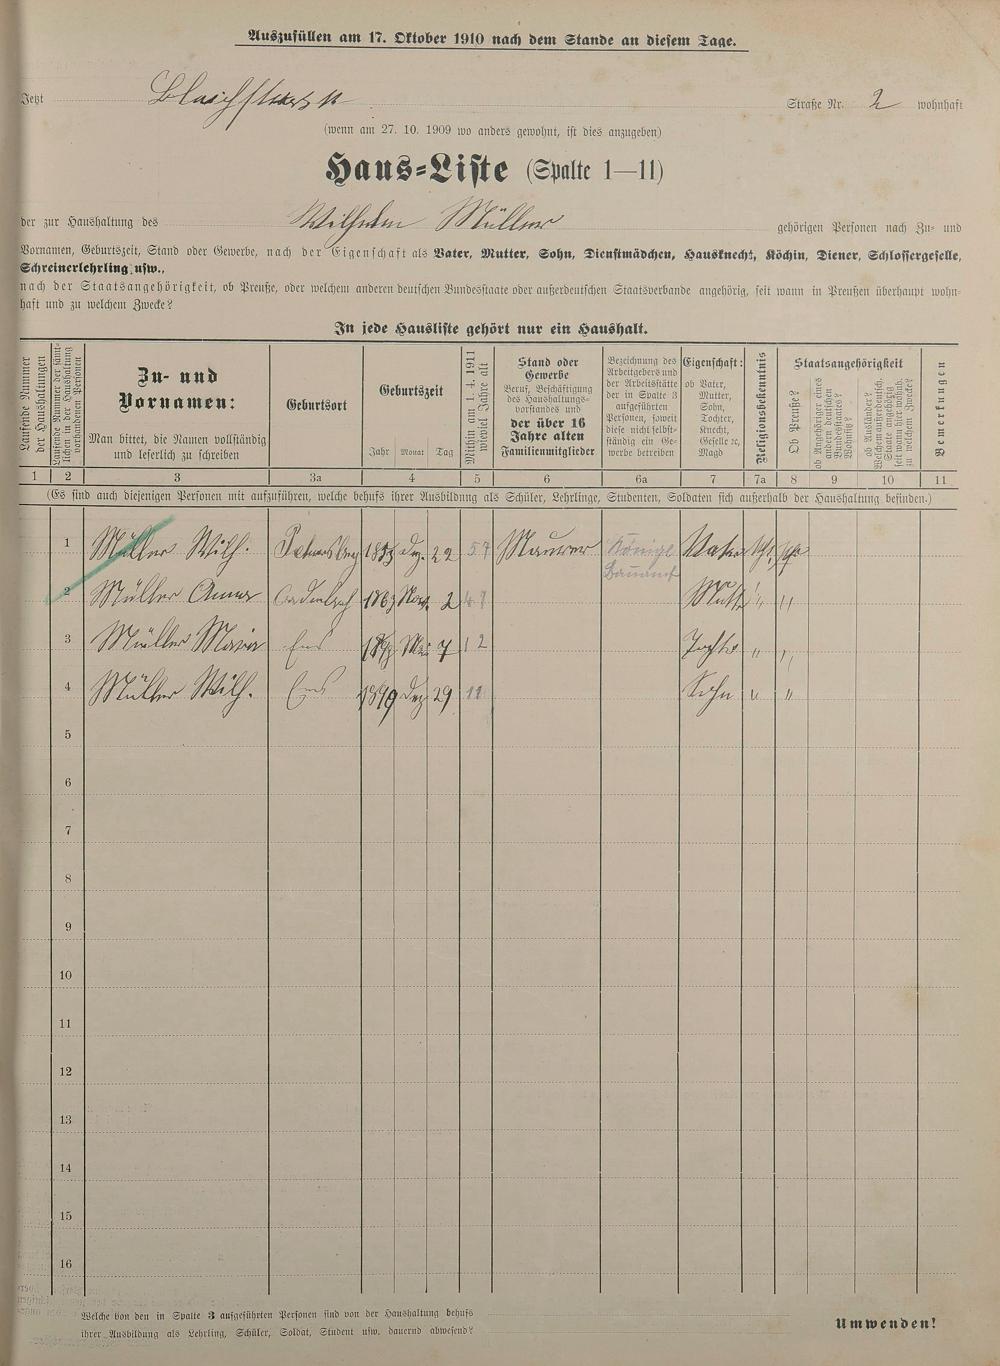 Auszufüllen am 17. Oktober 1910 nach dem Stande an diesem Tage.
Jetzt Straße Nr. 2 wohnhaft
(wenn am 27. 10. 1909 wo anders gewohnt, ist dies anzugeben)
Haus-Liste (Spalte 1—11)
der zur Haushaltung des Wilhelm Müller gehörigen Personen nach Zu- und
Vornamen, Geburtszeit, Stand oder Gewerbe, nach der Eigenschaft als Vater, Mutter, Sohn, Dienstmädchen, Hausknecht, Köchin, Diener, Schlossergeselle,
Schreinerlehrling usw.,
nach der Staatsangehörigkeit, ob Preuße, oder welchem anderen deutschen Bundesstaate oder außerdeutschen Staatsverbande angehörig, seit wann in Preußen überhaupt wohn-
haft und zu welchem Zwecke?
In jede Hausliste gehört nur ein Haushalt.
Laufende Nummer
der Haushaltungen
Laufende Nummer der sämt-
lichen in der Haushaltung
vorhandenen Personen
Zu- und
Vornamen:
Man bittet, die Namen vollständig
und leserlich zu schreiben
Geburtsort
Geburtszeit
Jahr Monat Tag
Mithin am 1. 4. 1911
wieviel Jahre alt
Stand oder
Gewerbe
Beruf, Beschäftigung
des Haushaltungs-
vorstandes und
der über 16
Jahre alten
Familienmitglieder
Bezeichnung des
Arbeitgebers und
der Arbeitsstätte
der in Spalte 3
aufgeführten
Personen, soweit
diese nicht selbst-
ständig ein Ge-
werbe betreiben
Eigenschaft:
ob Vater,
Mutter,
Sohn,
Tochter,
Knecht,
Geselle ꝛc,
Magd
Religionsbekenntnis
Staatsangehörigkeit
Ob Preuße?
ob Angehöriger eines
andern deutschen
Bundesstaates?
Wohnsitz?
ob Ausländer?
Welchem außerdeutsch.
Staate angehörig
seit wann hier wohnh.
zu welchem Zwecke?
Bemerkungen
1 2 3 3a 4 5 6 6a 7 7a 8 9 10 11
(Es sind auch diejenigen Personen mit aufzuführen, welche behufs ihrer Ausbildung als Schüler, Lehrlinge, Studenten, Soldaten sich außerhalb der Haushaltung befinden.)
1 Müller Wilh. Dez. 22 57 Maurer Königl. Bauamt Vater
2 Müller Anna Cadenbach Nov. 2 Mutter " "
3 Müller Maria Ems Mai 7 12 Tochter " "
4 Müller Wilh. Ems 1899 Dez. 29 11 Sohn " "
5
6
7
8
9
10
11
12
13
14
15
16
Welche von den in Spalte 3 aufgeführten Personen sind von der Haushaltung behufs
ihrer Ausbildung als Lehrling, Schüler, Soldat, Student usw. dauernd abwesend?
Umwenden!